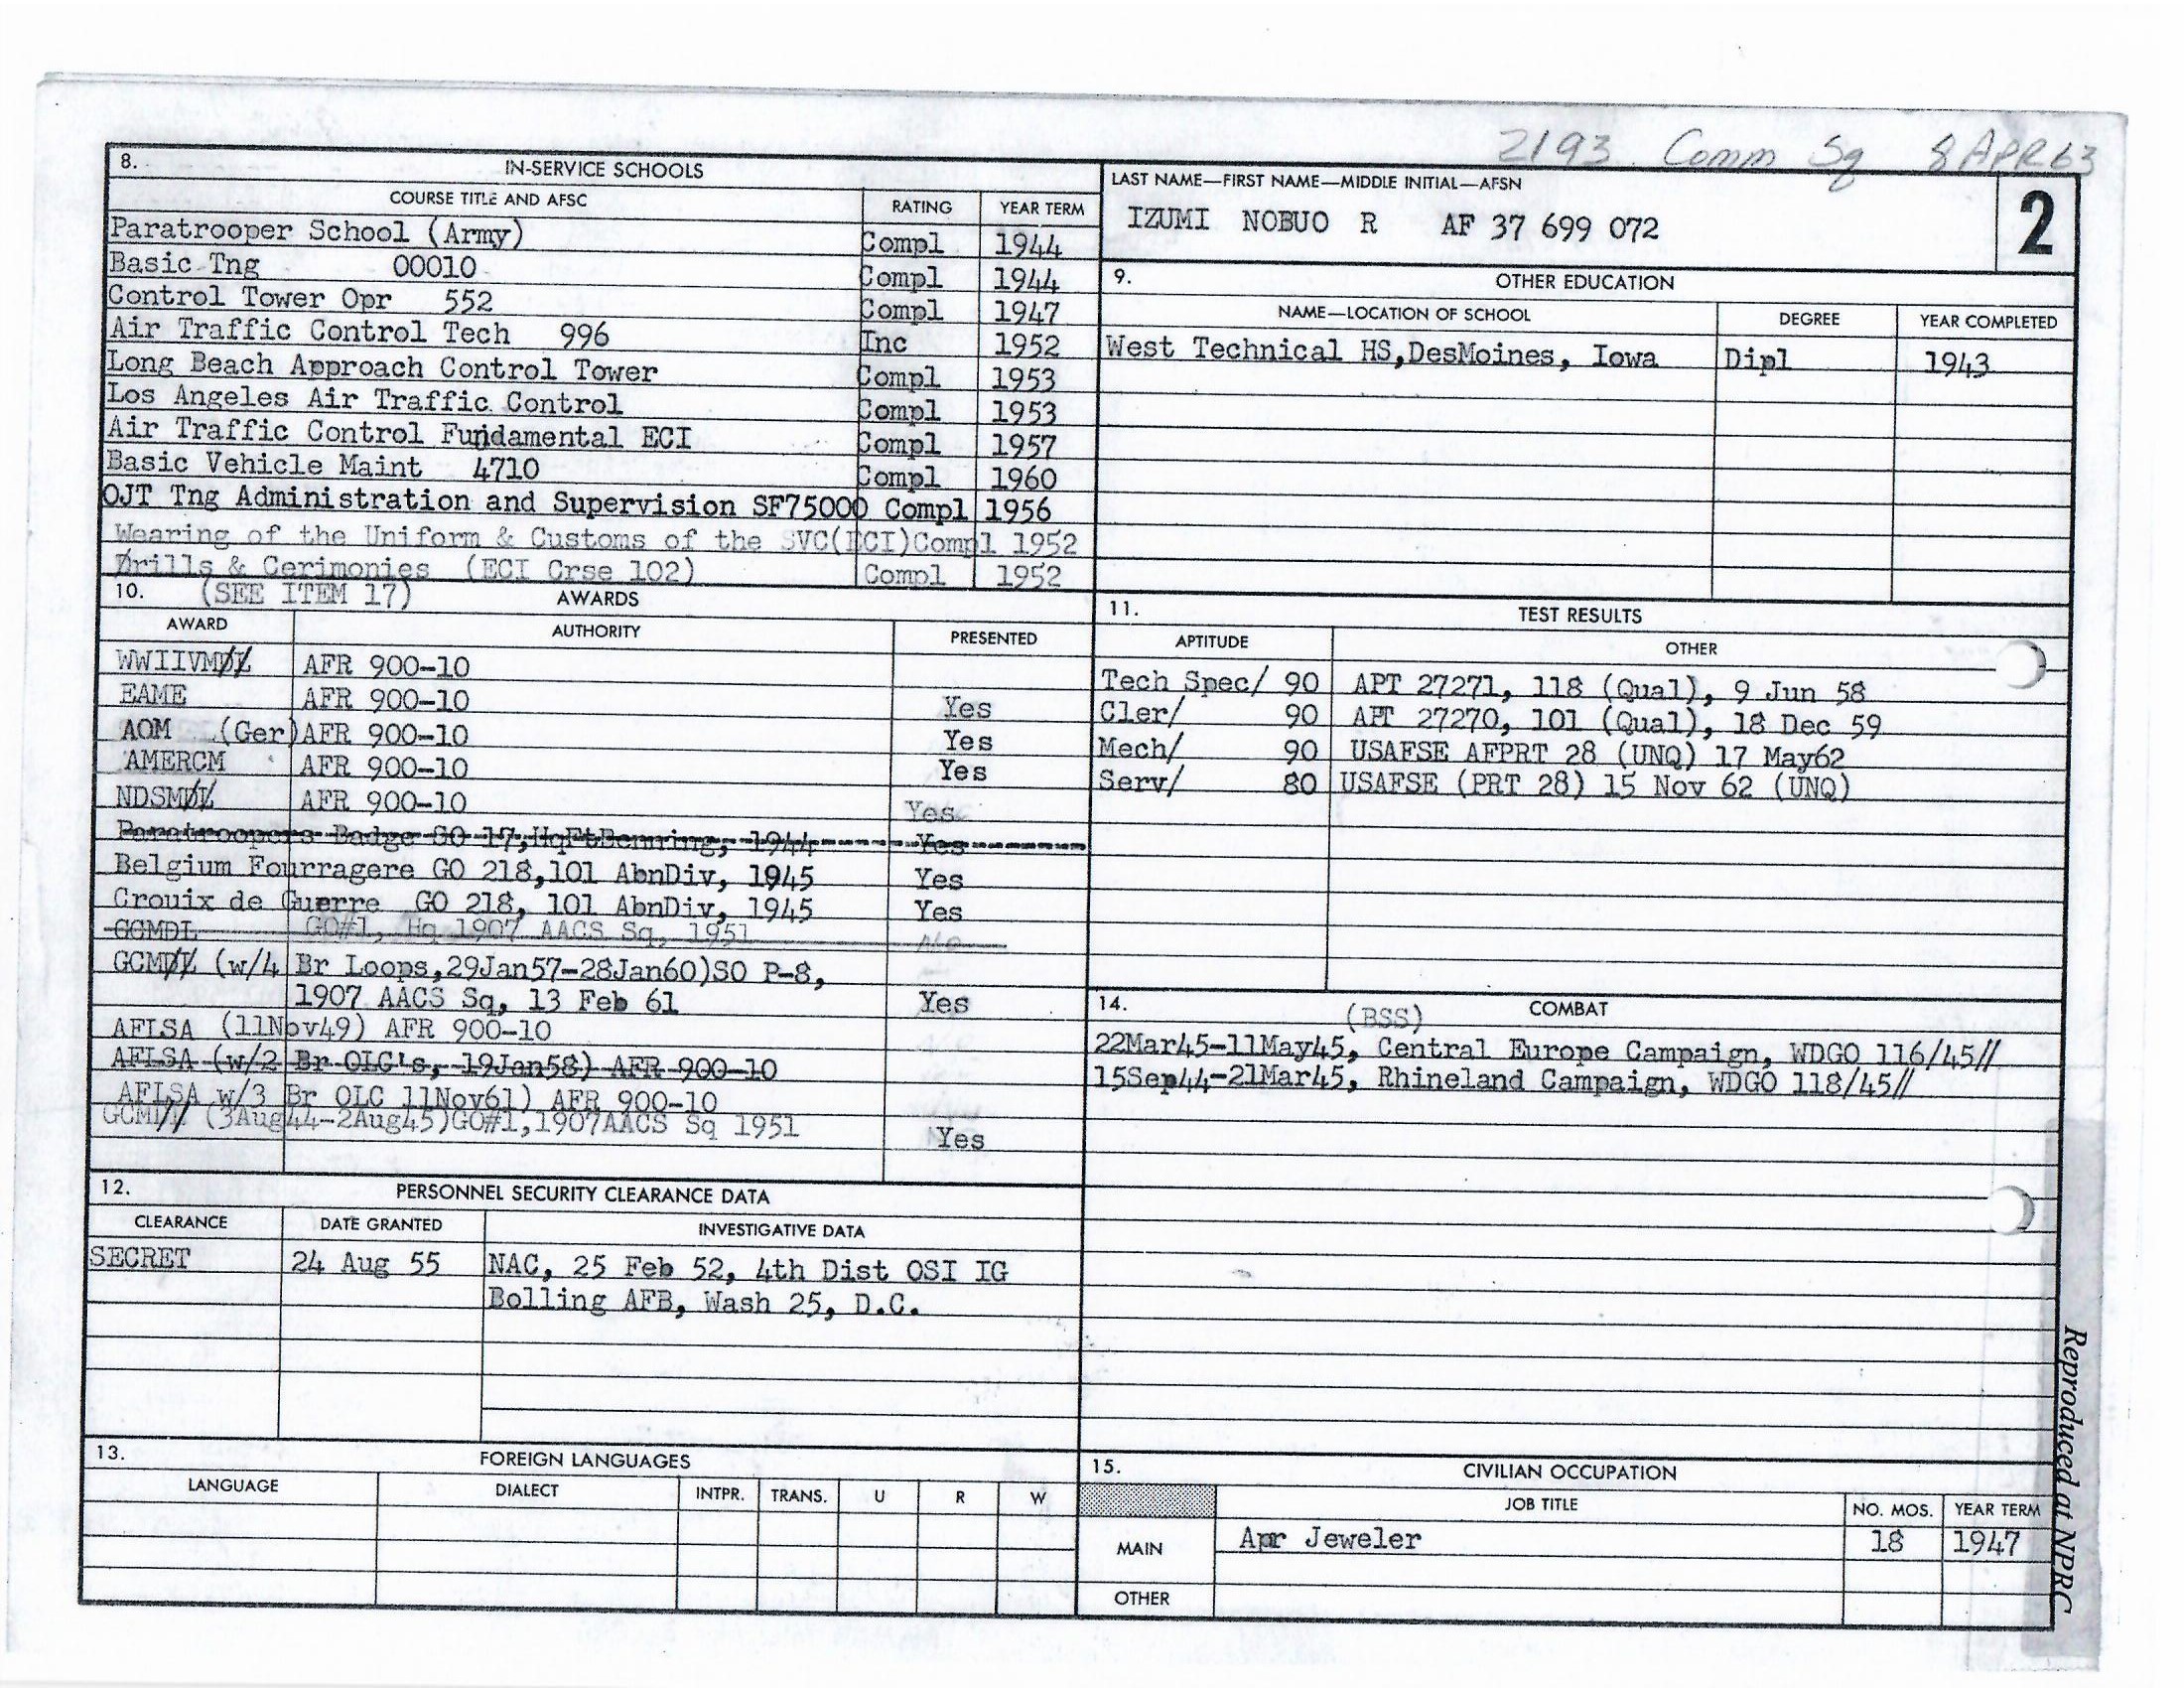 2193 Comm Sq 8 APR 63
8. IN-SERVICE SCHOOLS
COURSE TITLE AND AFSC RATING YEAR TERM
Paratrooper School (Army) Compl 1944
Basic Tng 00010 Compl 1944
Control Tower Opr 552 Compl 1947
Air Traffic Control Tech 996 Inc 1952
Long Beach Approach Control Tower Compl 1953
Los Angeles Air Traffic Control Compl 1953
Air Traffic Control Fundamental ECI Compl 1957
Basic Vehicle Maint 4710 Compl 1960
OJT Tng Administration and Supervision SF75000 Compl 1956
Wearing of the Uniform & Customs of the SVC(ECI)Compl 1952
Drills & Cerimonies (ECI Crse 102) Compl 1952
LAST NAME—FIRST NAME—MIDDLE INITIAL—AFSN
IZUMI NOBUO R AF 37 699 072
2
9. OTHER EDUCATION
NAME—LOCATION OF SCHOOL DEGREE YEAR COMPLETED
West Technical HS,DesMoines, Iowa Dipl 1943
10. (SEE ITEM 17) AWARDS
AWARD AUTHORITY PRESENTED
WWIIVM AFR 900-10
EAME AFR 900-10 Yes
AOM (Ger)AFR 900-10 Yes
AMERCM AFR 900-10 Yes
NDSM AFR 900-10 Yes
Paratroopers Badge GO 17,HqFtBenning, 1944 Yes
Belgium Fourragere GO 218,101 AbnDiv, 1945 Yes
Crouix de Guerre GO 218, 101 AbnDiv, 1945 Yes
GCMDL GO#1, Hq 1907 AACS Sq, 1951
GCM (w/4 Br Loops,29Jan57-28Jan60)SO P-8,
1907 AACS Sq, 13 Feb 61 Yes
AFLSA (11Nov49) AFR 900-10
AFLSA (w/2 Br OLC's, 19Jan58) AFR 900-10
AFLSA w/3 Br OLC 11Nov61) AFR 900-10
GCM (3Aug44-2Aug45)GO#1,1907AACS Sq 1951 Yes
11. TEST RESULTS
APTITUDE OTHER
Tech Spec/ 90 APT 27271, 118 (Qual), 9 Jun 58
Cler/ 90 APT 27270, 101 (Qual), 18 Dec 59
Mech/ 90 USAFSE AFPRT 28 (UNQ) 17 May62
Serv/ 80 USAFSE (PRT 28) 15 Nov 62 (UNQ)
14. (BSS) COMBAT
22Mar45-11May45, Central Europe Campaign, WDGO 116/45//
15Sep44-21Mar45, Rhineland Campaign, WDGO 118/45//
12. PERSONNEL SECURITY CLEARANCE DATA
CLEARANCE DATE GRANTED INVESTIGATIVE DATA
SECRET 24 Aug 55 NAC, 25 Feb 52, 4th Dist OSI IG
Bolling AFB, Wash 25, D.C.
13. FOREIGN LANGUAGES
LANGUAGE DIALECT INTPR. TRANS. U R W
15. CIVILIAN OCCUPATION
JOB TITLE NO. MOS. YEAR TERM
MAIN Apr Jeweler 18 1947
OTHER
Reproduced at NPRC